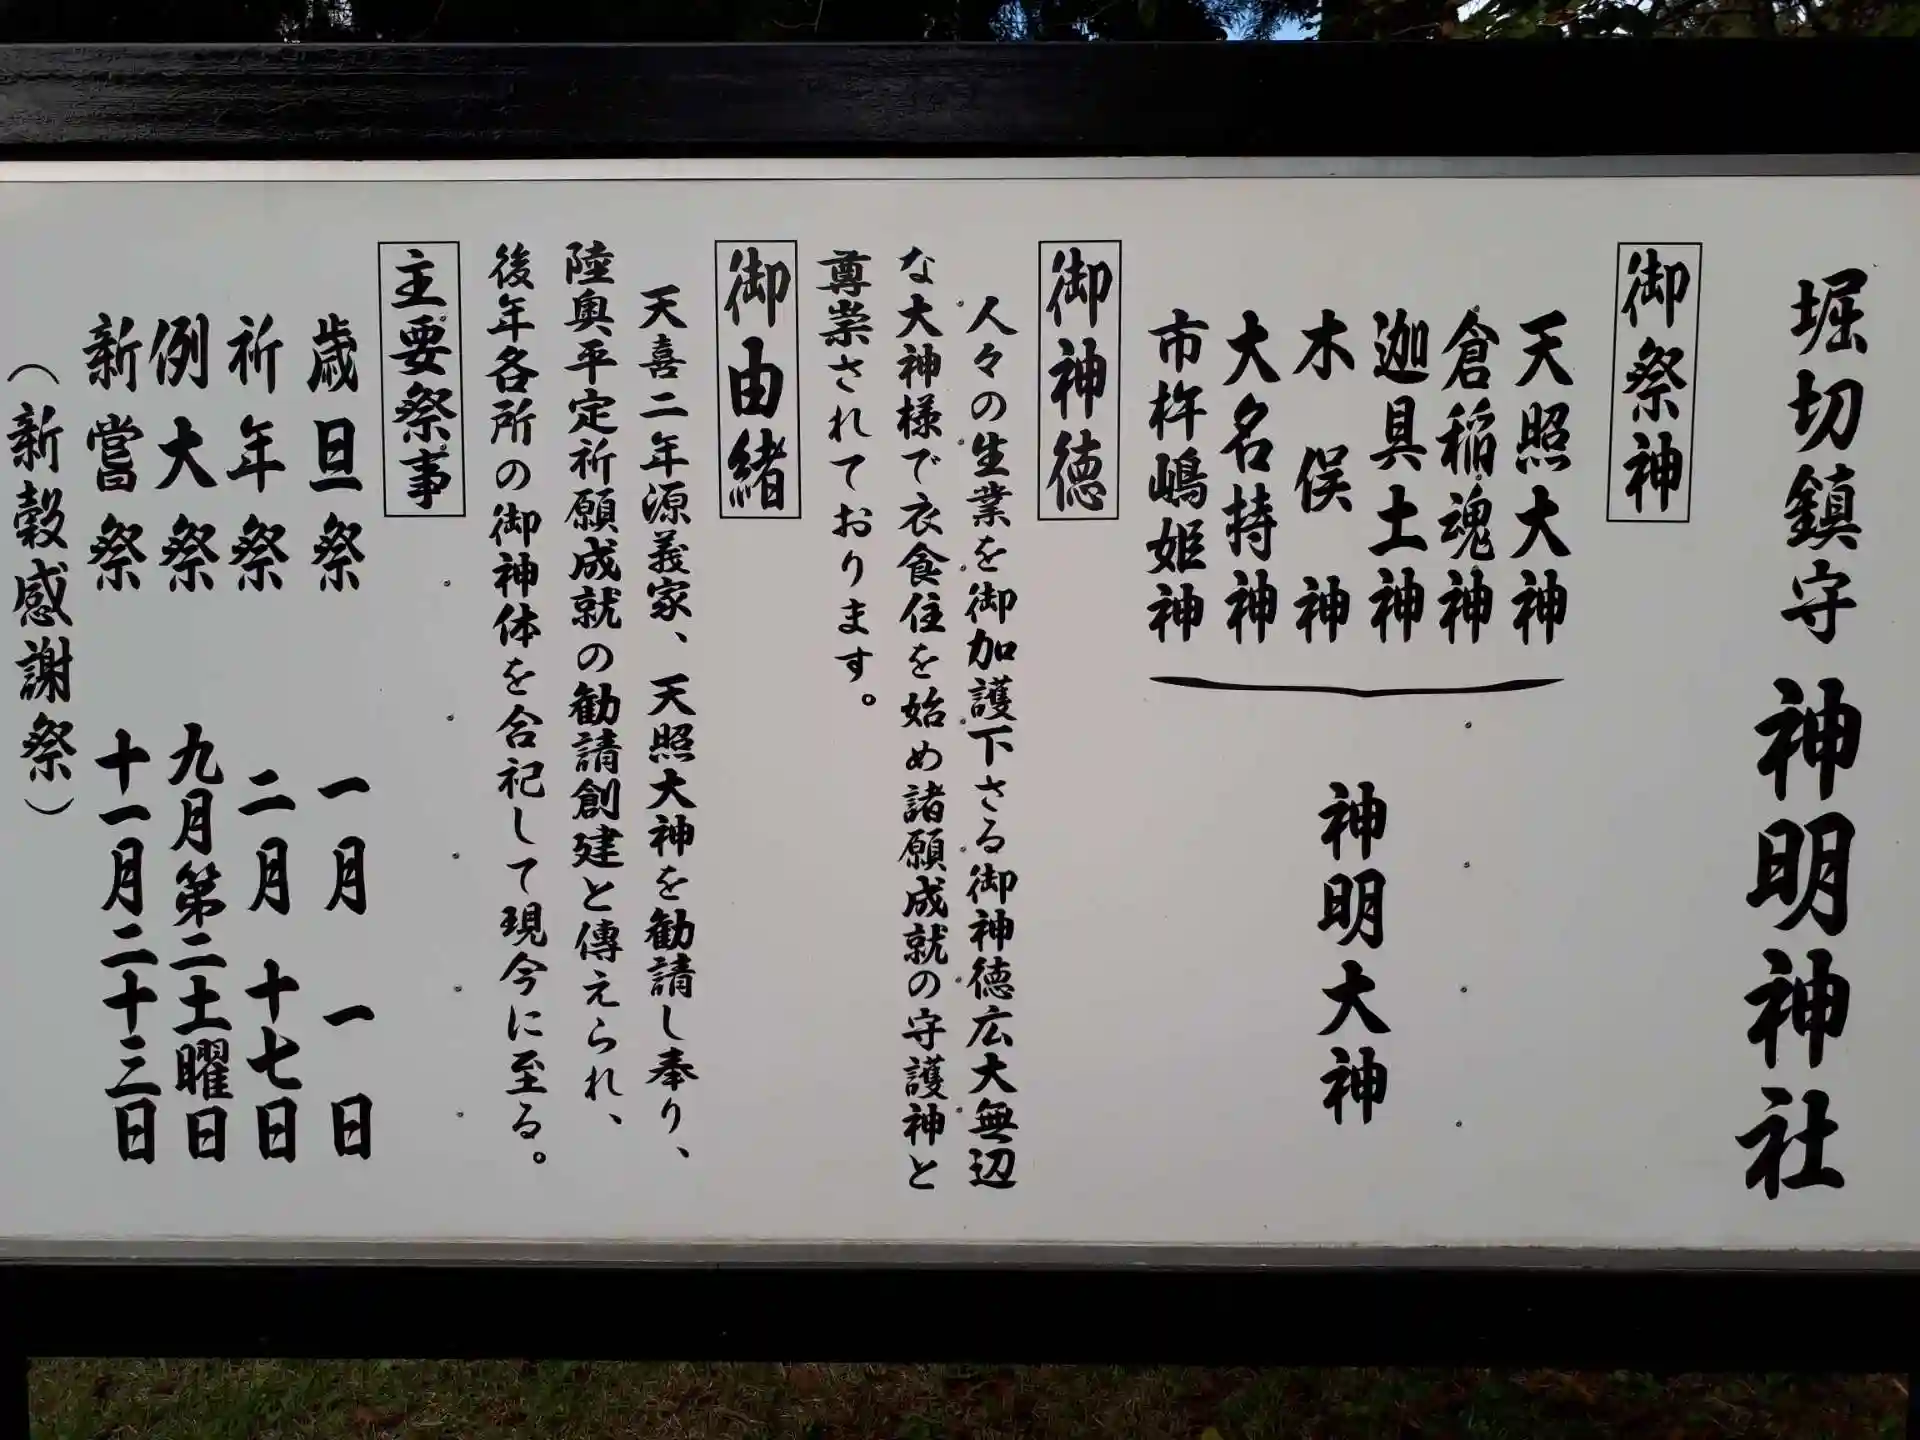 堀切鎮守 神明神社
御祭神
天照大神
倉稲魂神
迦具土神
木俣神
大名持神
市杵嶋姫神
神明大神
御神徳
人々の生業を御加護下さる御神徳広大無辺
な大神様で衣食住を始め諸願成就の守護神と
尊崇されております。
御由緒
天喜二年源義家、天照大神を勧請し奉り、
陸奥平定祈願成就の勧請創建と傳えられ、
後年各所の御神体を合祀して現今に至る。
主要祭事
歳旦祭 一月 一日
祈年祭 二月 十七日
例大祭 九月第二土曜日
新嘗祭 十一月二十三日
（新穀感謝祭）